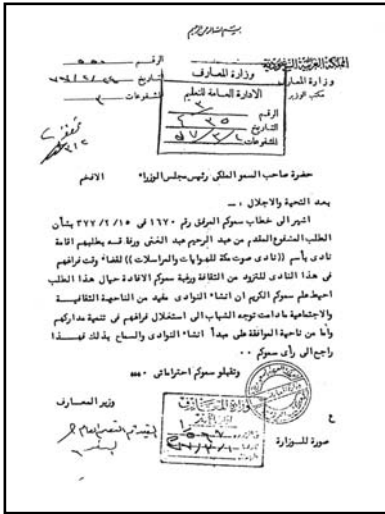 بسم الله الرحمن الرحيم
المملكة العربية السعودية
وزارة المعارف
مكتب الوزير
الرقم
التاريخ
المشفوعات
وزارة المعارف
الادارة العامة للتعليم
الرقم
التاريخ
المشفوعات
حضرة صاحب السمو الملكى رئيس مجلس الوزراء الافخم
بعد التحية والاجلال :ـ
اشير الى خطاب سموكم المرفق رقم ١٦٧٠ فى ٣٧٧/٢/١٥ بشأن
الطلب المشفوع المقدم من عبد الرحيم عبد الغنى ورفقه بطلبهم اقامة
نادى بأسم ((نادى صوت مكة للهوايات والمراسلات)) لقضاء وقت فراغهم
فى هذا النادى للتزود من الثقافة ورغبة سموكم الافادة حيال هذا الطلب
احيط علم سموكم الكريم ان انشاء النوادى مفيد من الناحية الثقافيـة
والاجتماعية مادامت توجه الشباب الى استغلال فراغهم فى تنمية مداركهم
وأما من ناحية الموافقة على مبدأ انشاء النوادى والسماح بذلك فهـذا
راجع الى رأى سموكم ٠٠
وتقبلو سموكم احتراماتى ٠٠٠
وزير المعـارف
صورة للـوزارة